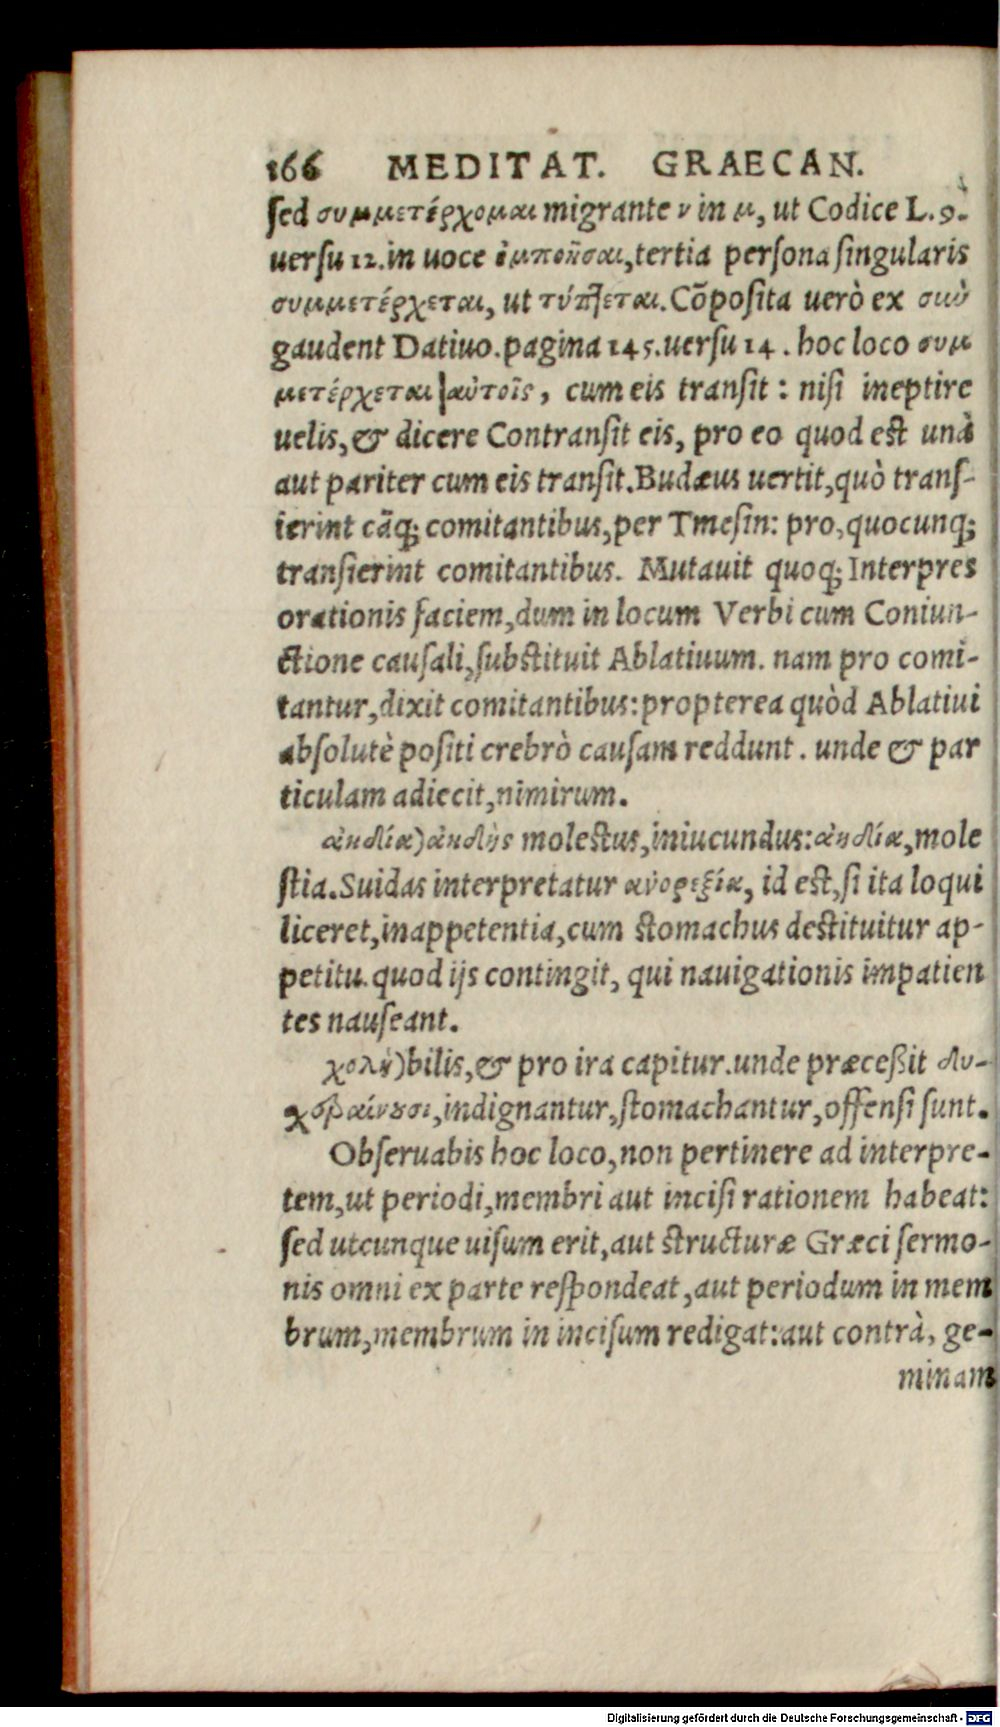 166 MEDITAT. GRAECAN.
ſed συμμετέρχομαι migrante ν in μ, ut Codice L.9.
uerſu 12.in uoce ἐμποιῆσαι,tertia perſona ſingularis
συμμετέρχεται, ut τύπτεται.Cõpoſita uerò ex σιὼ
gaudent Datiuo.pagina 145.uerſu 14. hoc loco συμ
μετέρχεται αὐτοῖς, cum eis tranſit: niſi ineptire
uelis,& dicere Contranſit eis, pro eo quod eſt unà
aut pariter cum eis tranſit.Budæus uertit,quò tranſ-
ierint cãq; comitantibus,per Tmeſin: pro,quocunq;
tranſierint comitantibus. Mutauit quoq; Interpres
orationis faciem,dum in locum Verbi cum Coniun-
ctione cauſali,ſubſtituit Ablatiuum. nam pro comi-
tantur,dixit comitantibus:propterea quòd Ablatiui
abſolutè poſiti crebrò cauſam reddunt. unde & par
ticulam adiecit,nimirum.
ἀηδία)ἀηδὴς moleſtus,iniucundus:ἀηδία,mole
ſtia.Suidas interpretatur ἀνορεξία, id eſt,ſi ita loqui
liceret,inappetentia,cum ſtomachus deſtituitur ap-
petitu.quod ijs contingit, qui nauigationis impatien
tes nauſeant.
χολὴ)bilis,& pro ira capitur.unde præceßit δυ-
χεραίνουσι,indignantur,ſtomachantur,offenſi ſunt.
Obſeruabis hoc loco,non pertinere ad interpre-
tem,ut periodi,membri aut inciſi rationem habeat:
ſed utcunque uiſum erit,aut ſtructuræ Græci ſermo-
nis omni ex parte reſpondeat,aut periodum in mem
brum,membrum in inciſum redigat:aut contrà, ge-
minam
Digitalisierung gefördert durch die Deutsche Forschungsgemeinschaft - DFG